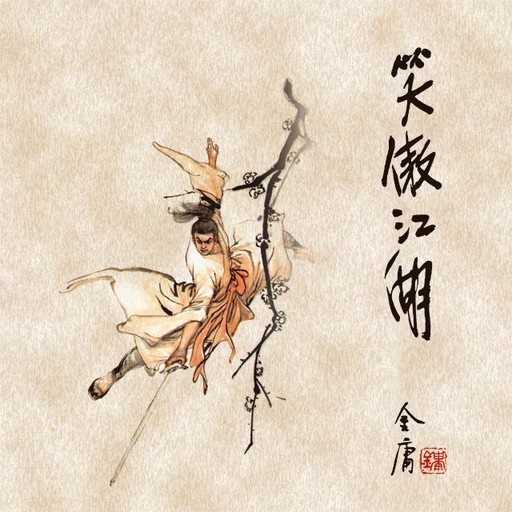 笑傲江湖
金庸
鏞